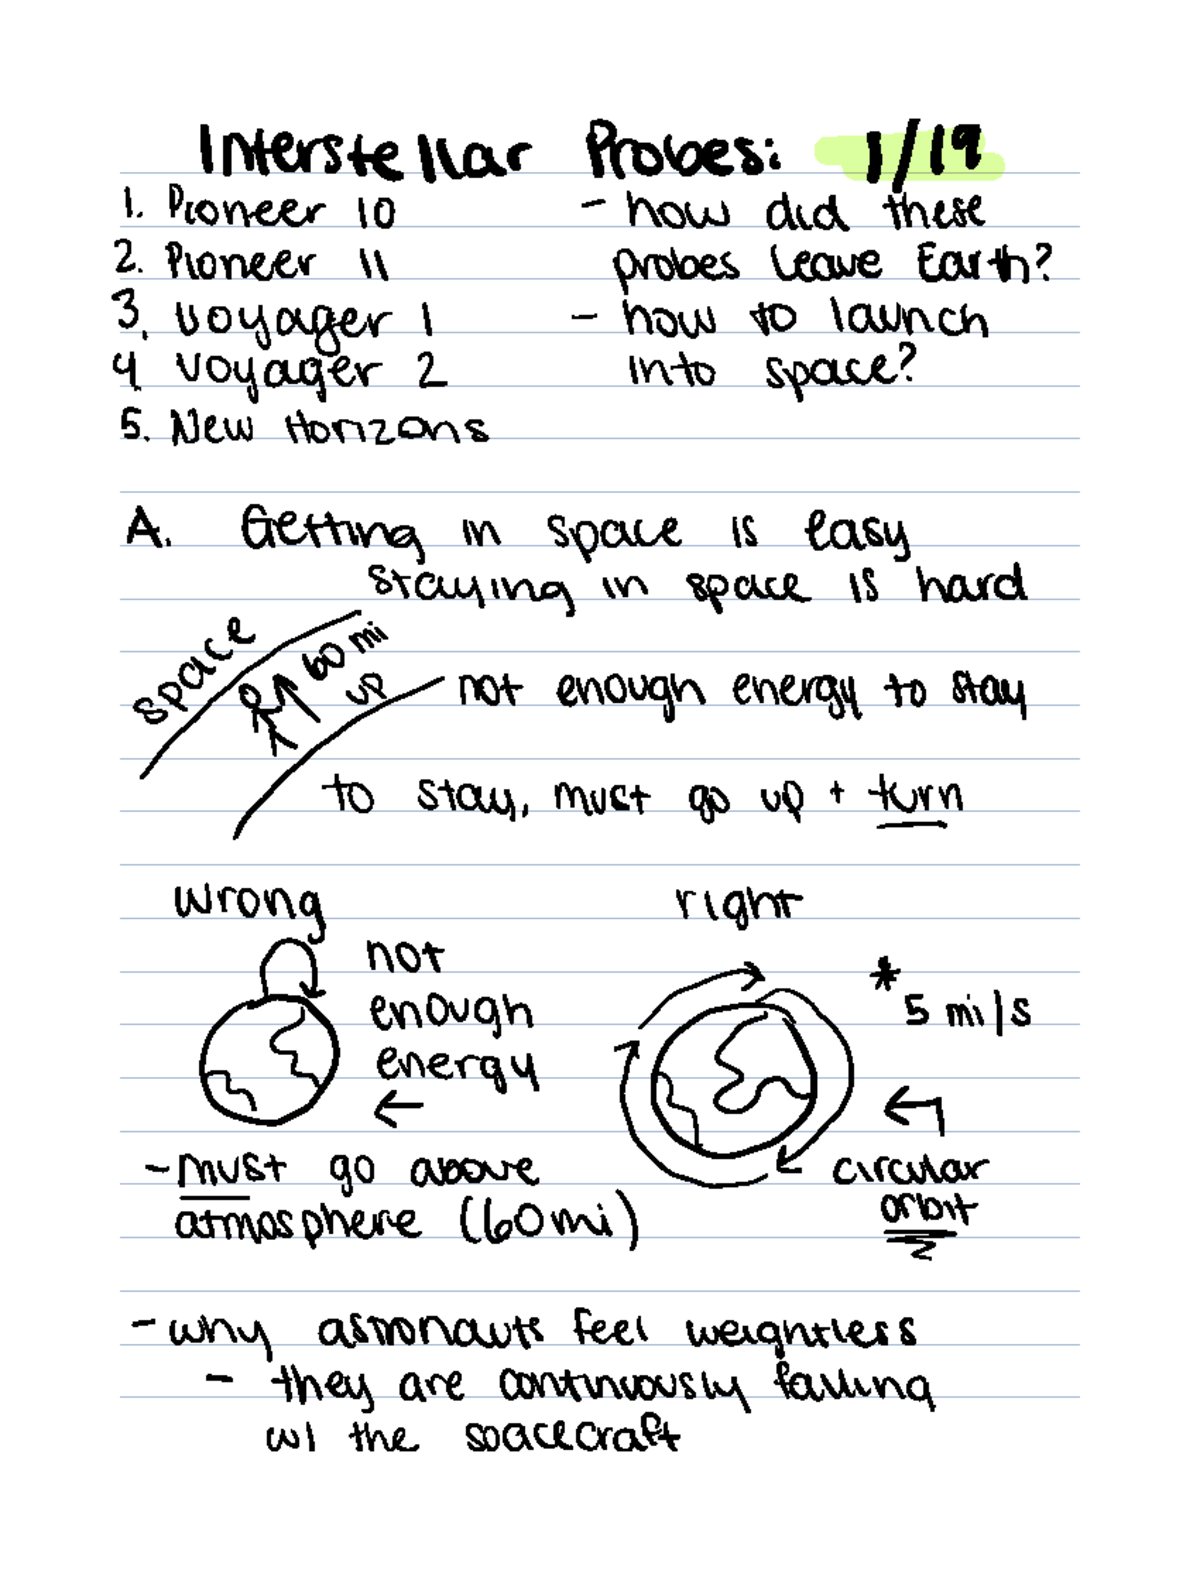 Interstellar Probes: 1/19
1. Pioneer 10
2. Pioneer 11
3. Voyager 1
4. Voyager 2
5. New Horizons
- how did these
probes leave Earth?
- how to launch
into space?
A. Getting in space is easy
staying in space is hard
space
60 mi
up
not enough energy to stay
to stay, must go up + turn
wrong
not
enough
energy
←
- must go above
atmosphere (60mi)
right
*
5 mi/s
circular
orbit
- why astronauts feel weightless
- they are continuously falling
w/ the spacecraft